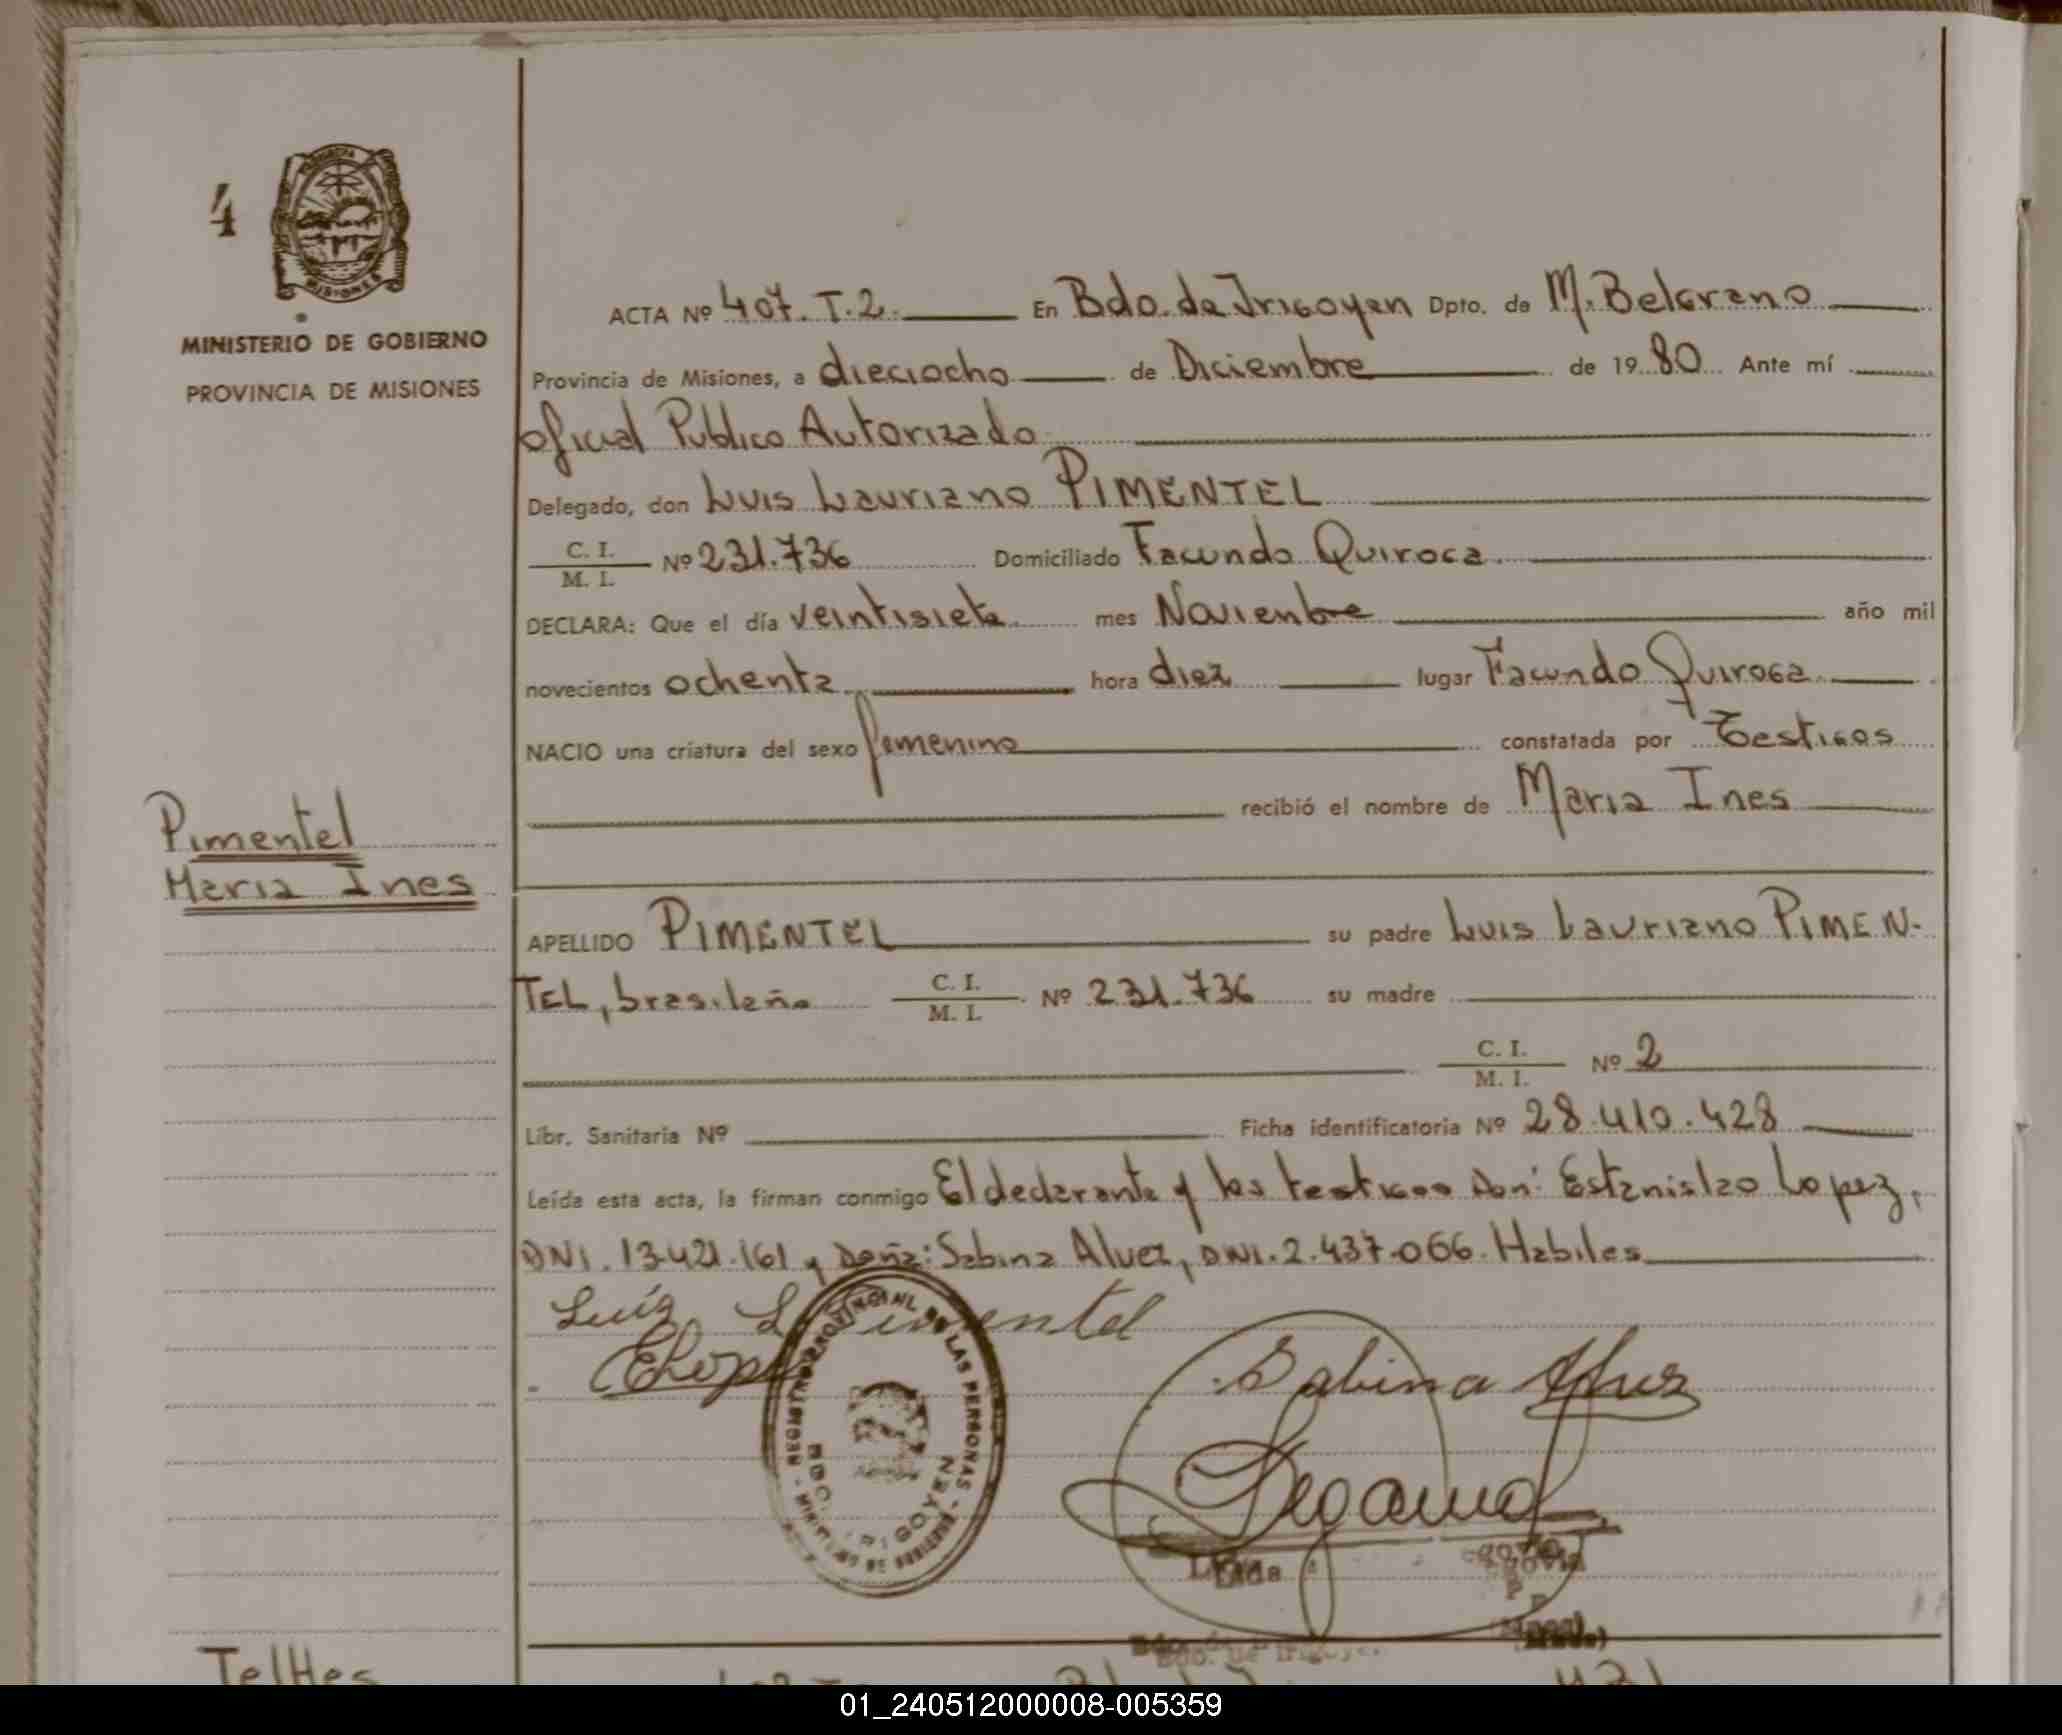 4
MISIONES
MINISTERIO DE GOBIERNO
PROVINCIA DE MISIONES
ACTA Nº 407. T.2. En Bdo. de Irigoyen Dpto. de M. Belgrano
Provincia de Misiones, a dieciocho de Diciembre de 1980 Ante mí
Oficial Publico Autorizado
Delegado, don Luis Lauriano PIMENTEL
C. I.
M. I. Nº 231.736 Domiciliado Facundo Quiroga
DECLARA: Que el día veintisiete mes Noviembre año mil
novecientos ochenta hora diez lugar Facundo Quiroga
NACIO una criatura del sexo femenino constatada por Testigos
recibió el nombre de Maria Ines
Pimentel
Maria Ines
APELLIDO PIMENTEL su padre Luis Lauriano PIMEN-
TEL, brasileño C. I.
M. I. Nº 231.736 su madre
C. I.
M. I. Nº 2
Libr. Sanitaria Nº Ficha identificatoria Nº 28.410.428
Leída esta acta, la firman conmigo El declarante y los testigos Don: Estanislao Lopez,
DNI. 13.421.161 y Doña: Sabina Alvez, DNI. 2.437.066. Habiles
Luiz L Pimentel
ELopez
Sabina Alvez
REGISTRO PROVINCIAL DE LAS PERSONAS
BDO. IRIGOYEN
Bdo. de Irigoyen
Telles
01_240512000008-005359